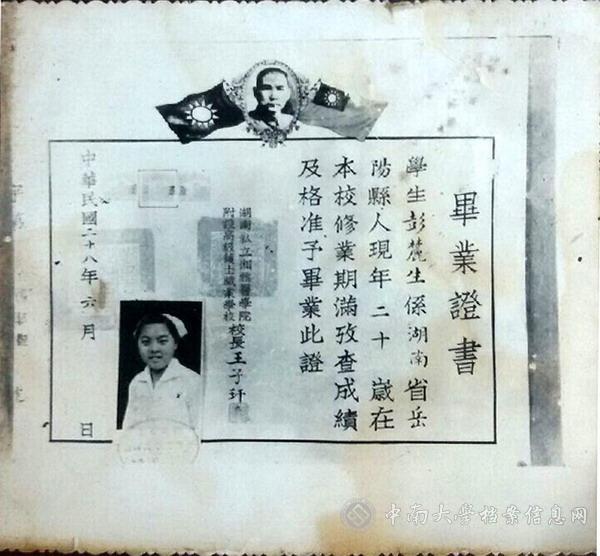 畢業證書
學生彭麓生係湖南省岳
陽縣人現年二十歲在
本校修業期滿攷查成績
及格准予畢業此證
湖南私立湘雅醫學院
附設高級護士職業學校
校長王子玕
中華民國二十八年六月 日
中南大学档案信息网